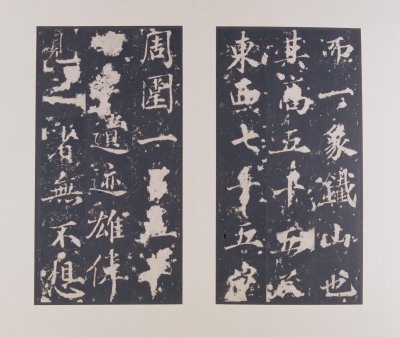 而一象鐵山也
其高五十五
東西七十五
周圍一
遺迹雄偉
見者無不想